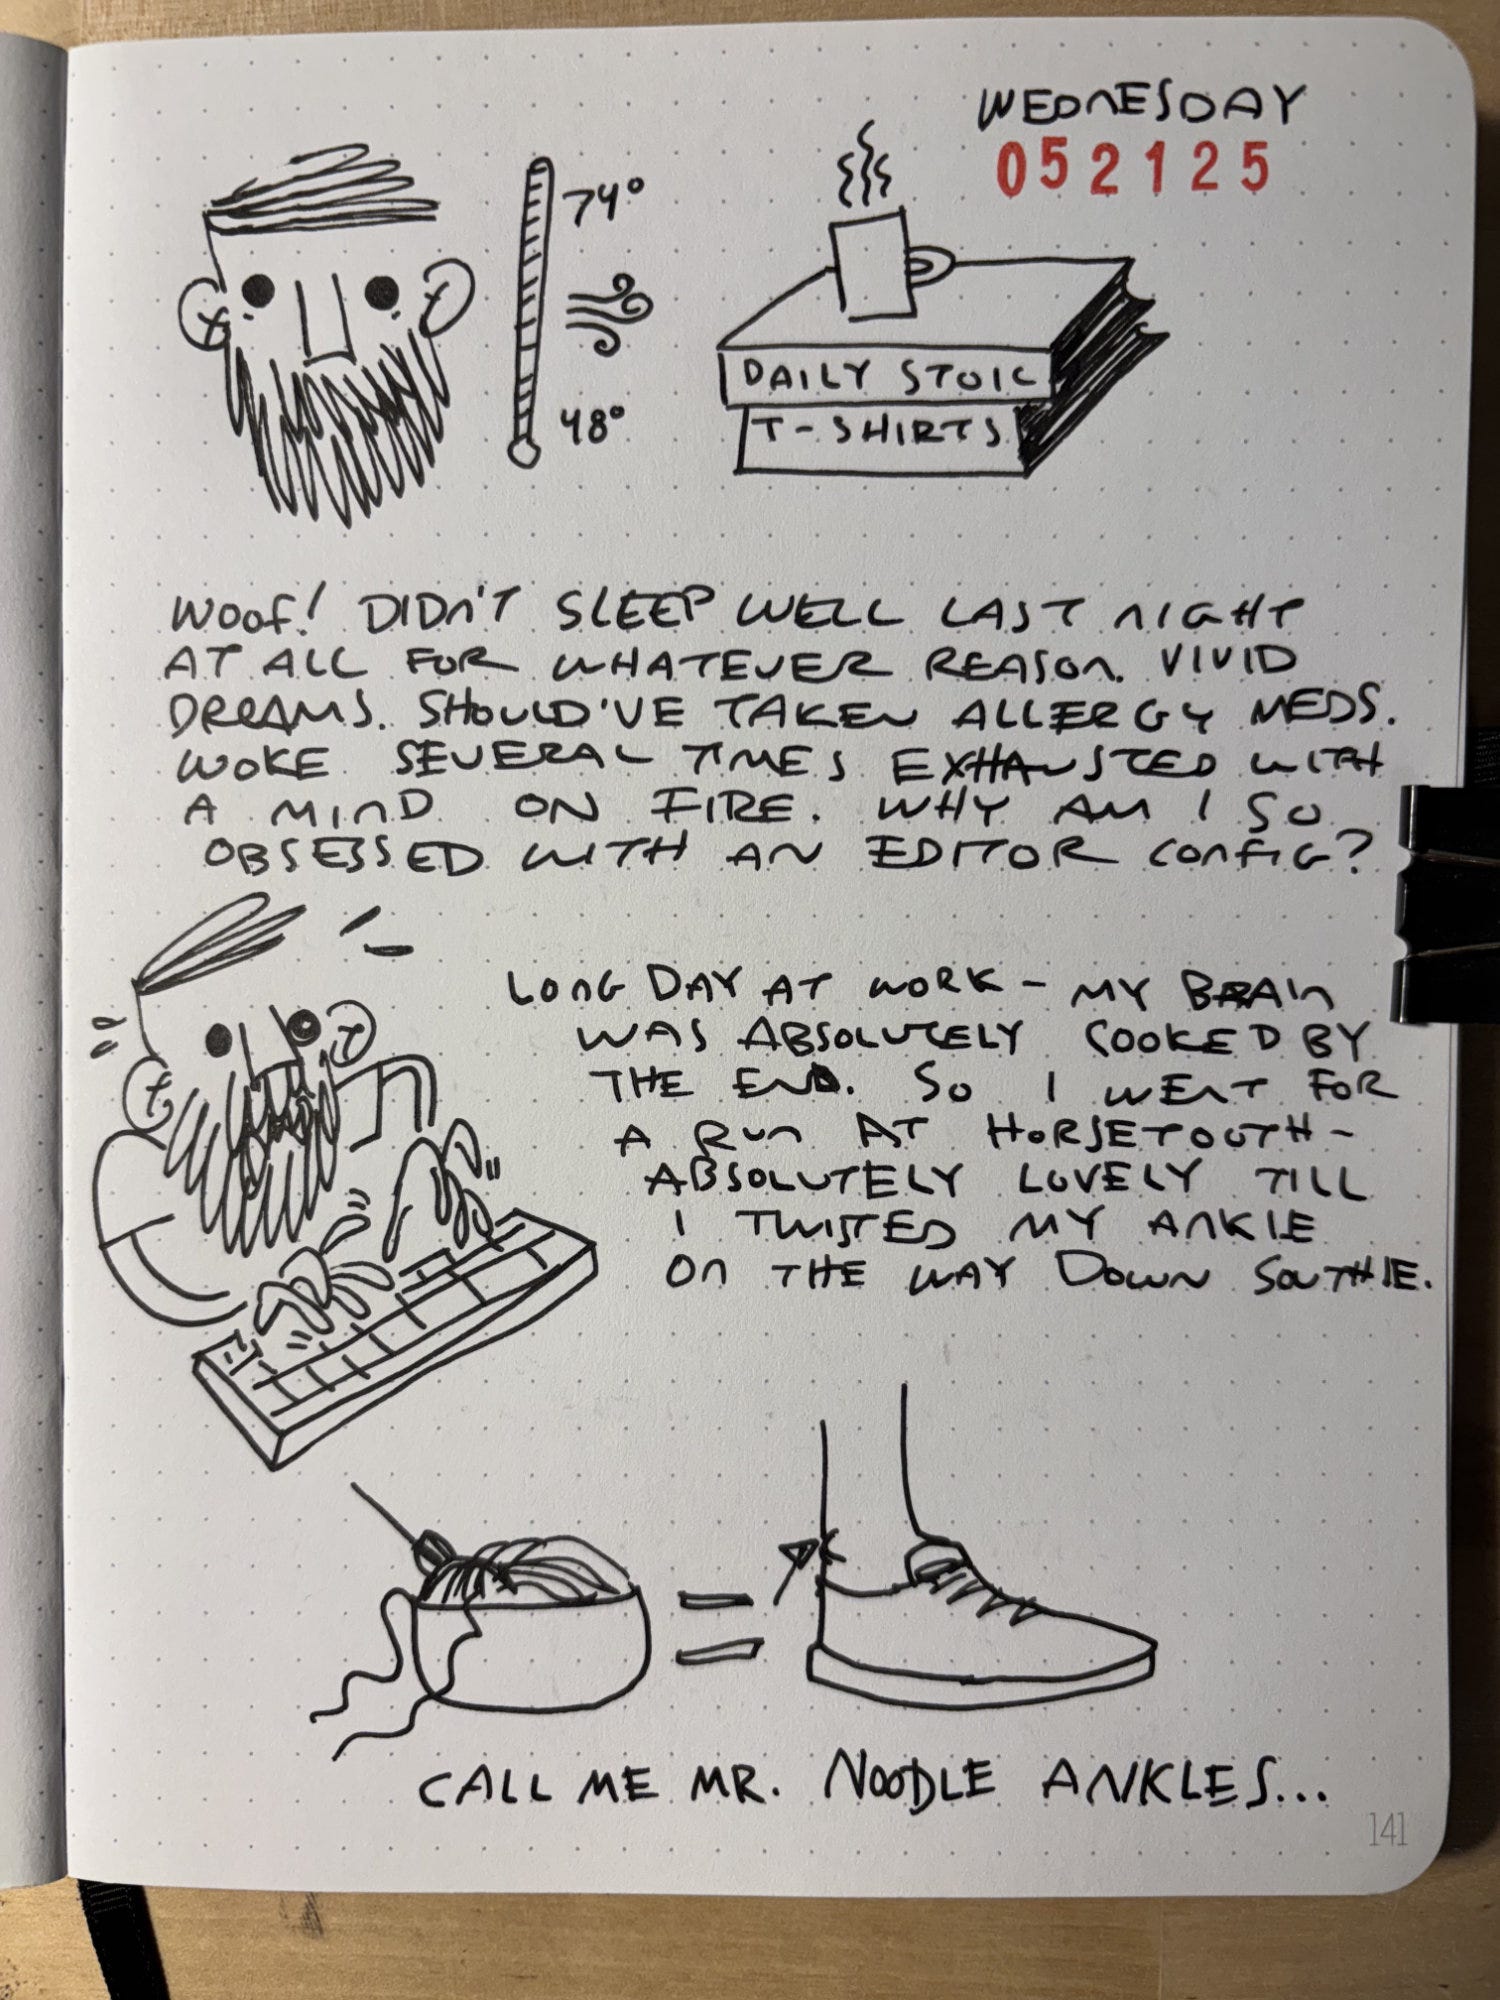 WEDNESDAY
052125
74°
48°
DAILY STOIC
T-SHIRTS
WOOF! DIDN'T SLEEP WELL LAST NIGHT
AT ALL FOR WHATEVER REASON. VIVID
DREAMS. SHOULD'VE TAKEN ALLERGY MEDS.
WOKE SEVERAL TIMES EXHAUSTED WITH
A MIND ON FIRE. WHY AM I SO
OBSESSED WITH AN EDITOR CONFIG?
LONG DAY AT WORK - MY BRAIN
WAS ABSOLUTELY COOKED BY
THE END. SO I WENT FOR
A RUN AT HORSETOOTH -
ABSOLUTELY LOVELY TILL
I TWISTED MY ANKLE
ON THE WAY DOWN SOUTHIE.
CALL ME MR. NOODLE ANKLES...
141